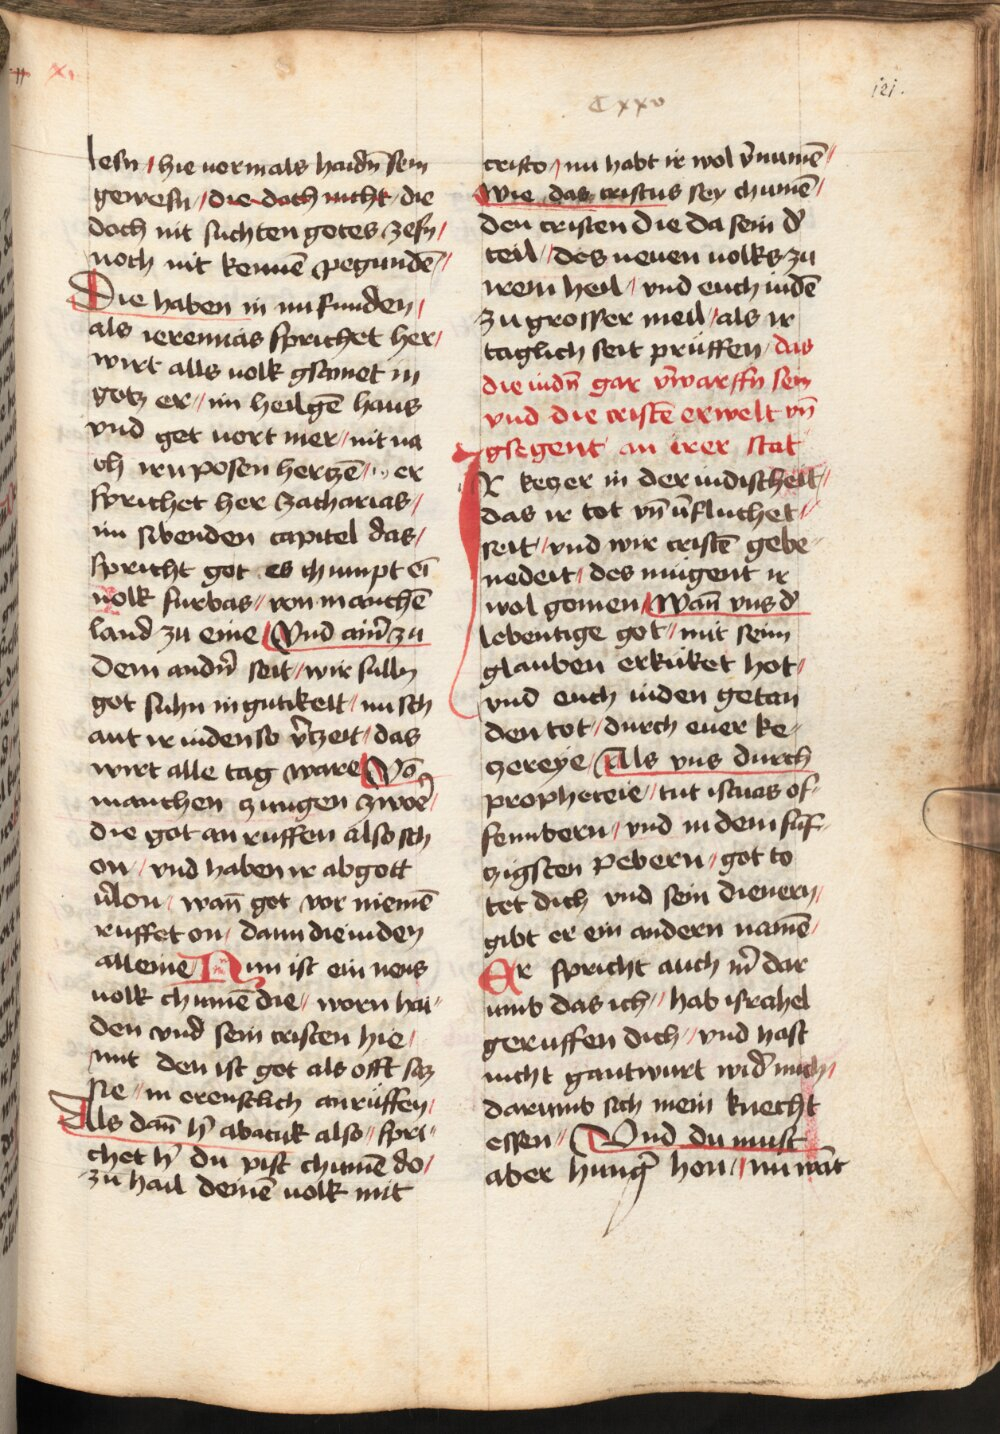 xi
C xxv
121.
lesn / hie vormals haidn̄ sein
gewesn / die doch nicht die
doch nit suchten gotes zesn /
noch nit kennē pegundē /
Die haben in nu funden /
als ieremias sprichet her /
wirt alls volk gsamet in
gotz er // im heilgē haus
vnd get vort mer / nit na
ch irn posen hertzē / er
sprichet her zacharias /
im sibenden capitel das /
spricht got es chumpt eī
volk furbas // von manchē
land zu eine Vnd ainr̄ zu
dem andn̄ seit / wir sulln
got suhn in gutikeit / nu sch
aut ir iuden so v̄rzeit / das
wirt alle tag ware Vō
manchen zungen zwoe /
die got an ruffen also sch
on / vnd haben ir abgott
v̄lon / wan̄ got vor niemē
ruffet on / dann die iuden
alleine / Nun ist ein neus
volk chumē die // worn hai
den vnd sein cristen hie /
mit den ist got als offt saz
sie // in ernstlich anrüffen /
Als dan̄ hr̄ abacuk also // spri
chet hr̄ du pist chumē do /
zu hail deinē volk mit
cristo / nu habt ir wol v̄numē /
wie das cristus sey chumē /
den cristen die da sein d̄
teil / des neuen volks zu
irem heil / vnd euch iudē
zu grosser meil / als ir
taglich seit prüffen / das
die iudn̄ gar v̄rwarffn sein
vnd die cristē erwelt vn̄
gsegent an irer stat
Ir ketzer in der iudischeit /
das ir tot vn̄ v̄fluchet /
seit / vnd wir cristē gebe
nedeit / des mugent ir
wol gomen / Wan̄ vns d̄
lebentige got / mit seim
glauben erkuket hot /
vnd euch iuden getan
den tot / durch euer ke
tzereye / Als vns durch
propheteie / tut isaias of
fennbern / vnd in dem funf
tzigsten pewern / got to
tet dich vnd sein dienern /
gibt er ein andern namē /
Er spricht auch mr̄ dar
vmb das ich // hab israhel
geruffen dich / vnd hast
nicht gantwurt wid̄ mich /
darumb sich mein knecht
essen // Vnd du must
aber hungr̄ hon // nu wāt